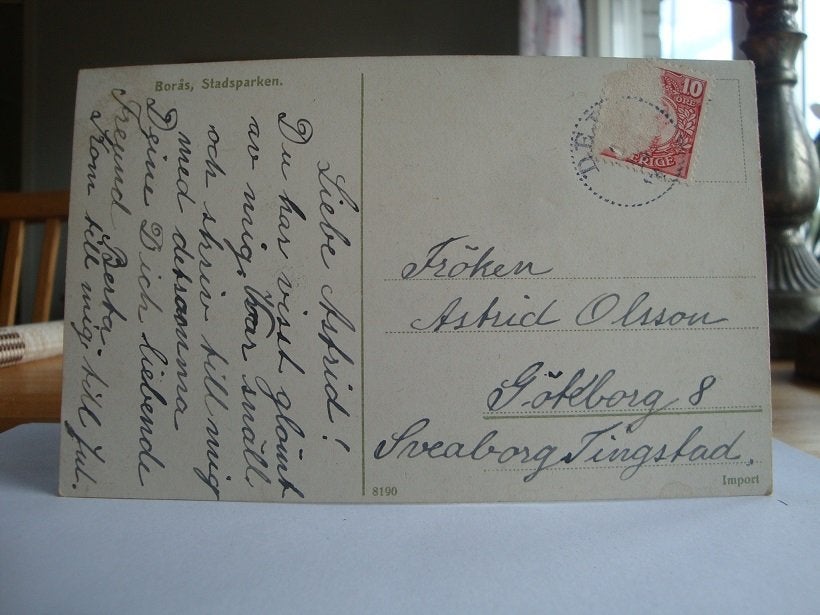 Borås, Stadsparken.
Liebe Astrid!
Du har visst glömt
av mig. Var snäll
och skriv till mig
med detsamma
Deine Dich liebende
Freund Berta.
Kom till mig till Jul.
10
ÖRE
ERIGE
DE
Fröken
Astrid Olsson
Göteborg 8
Sveaborg Tingstad.
8190
Import